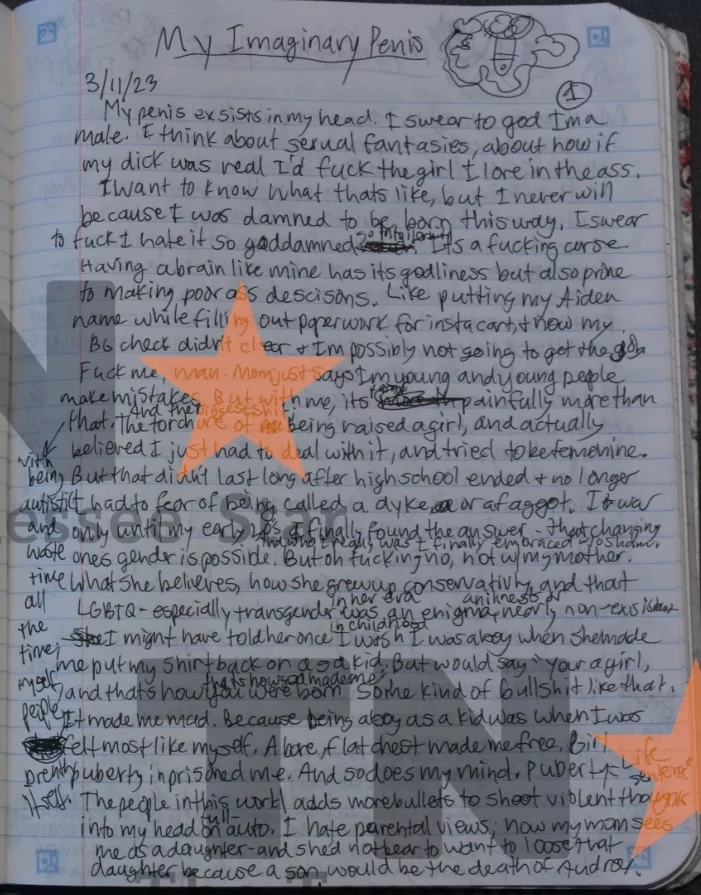 My Imaginary Penis
3/11/23
1
My penis exsists in my head. I swear to god I'm a
male. I think about sexual fantasies, about how if
my dick was real I'd fuck the girl I love in the ass.
I want to know what thats like, but I never will
because I was damned to be born this way. I swear
to fuck I hate it so goddamned Its a fucking curse.
Having a brain like mine has its godliness but also prone
to making poor ass descisons. Like putting my Aiden
name while filling out paperwork for instacart, & now my
BG check didn't clear & I'm possibly not going to get the job
Fuck me, man. Mom just says I'm young and young people
make mistakes. But with me, its painfully more than
that. And the The torchure of being raised a girl, and actually
believed I just had to deal with it, and tried to be femenine.
But that didn't last long after high school ended & no longer
I had to fear of being called a dyke or a faggot. It was
only until my early 20s I finally found the answer - that changing
and who I really was I finally embraced
ones gender is possible. But oh fucking no, not w/ my mother.
What she believes, how she grew up conservativly and that
in her era
LGBTQ - especially transgender was an enigma, nearly non-existent
in childhood
I might have told her once I wish I was a boy when she made
me put my shirt back on as a kid. But would say "your a girl,
thats how god made me
and thats how you were born" some kind of bullshit like that.
It made me mad. Because being a boy as a kid was when I was
felt most like myself. A bare, flat chest made me free. Girl
puberty inprisoned me. And so does my mind. Puberty = "life sentense"
The people in this world adds more bullets to shoot violent thoughts
into my head on full-auto. I hate parental views; how my mom sees
me as a daughter - and she'd not bear to want to loose that
daughter because a son would be the death of Audrey.
with
being
autistic
and
waste
time
all
the
time,
myself
people
itself.
TN
Tennessee Star
TN